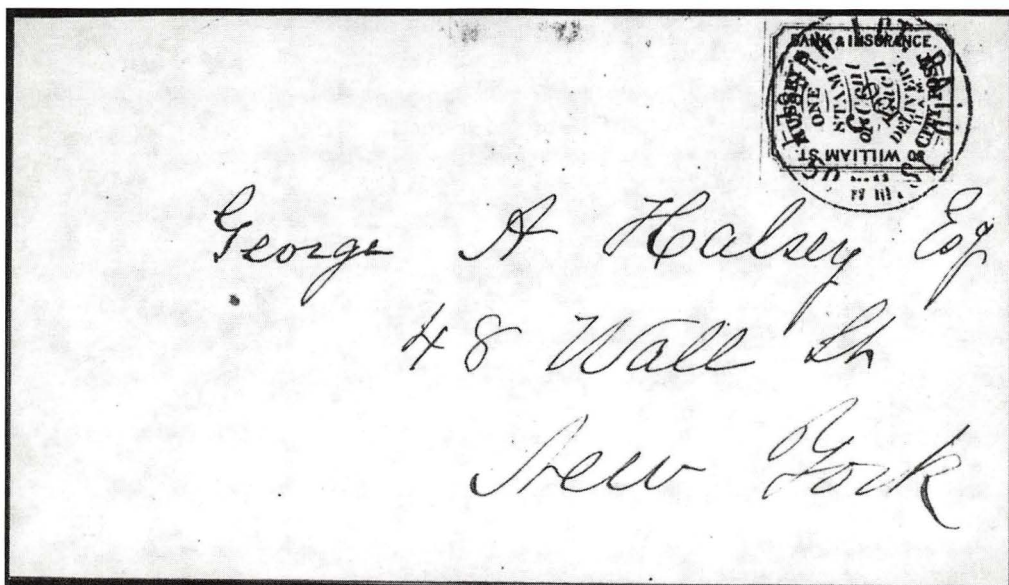 BANK & INSURANCE.
ONE
STAMP
50 WILLIAM ST.
George A Halsey Esq
48 Wall St
New York